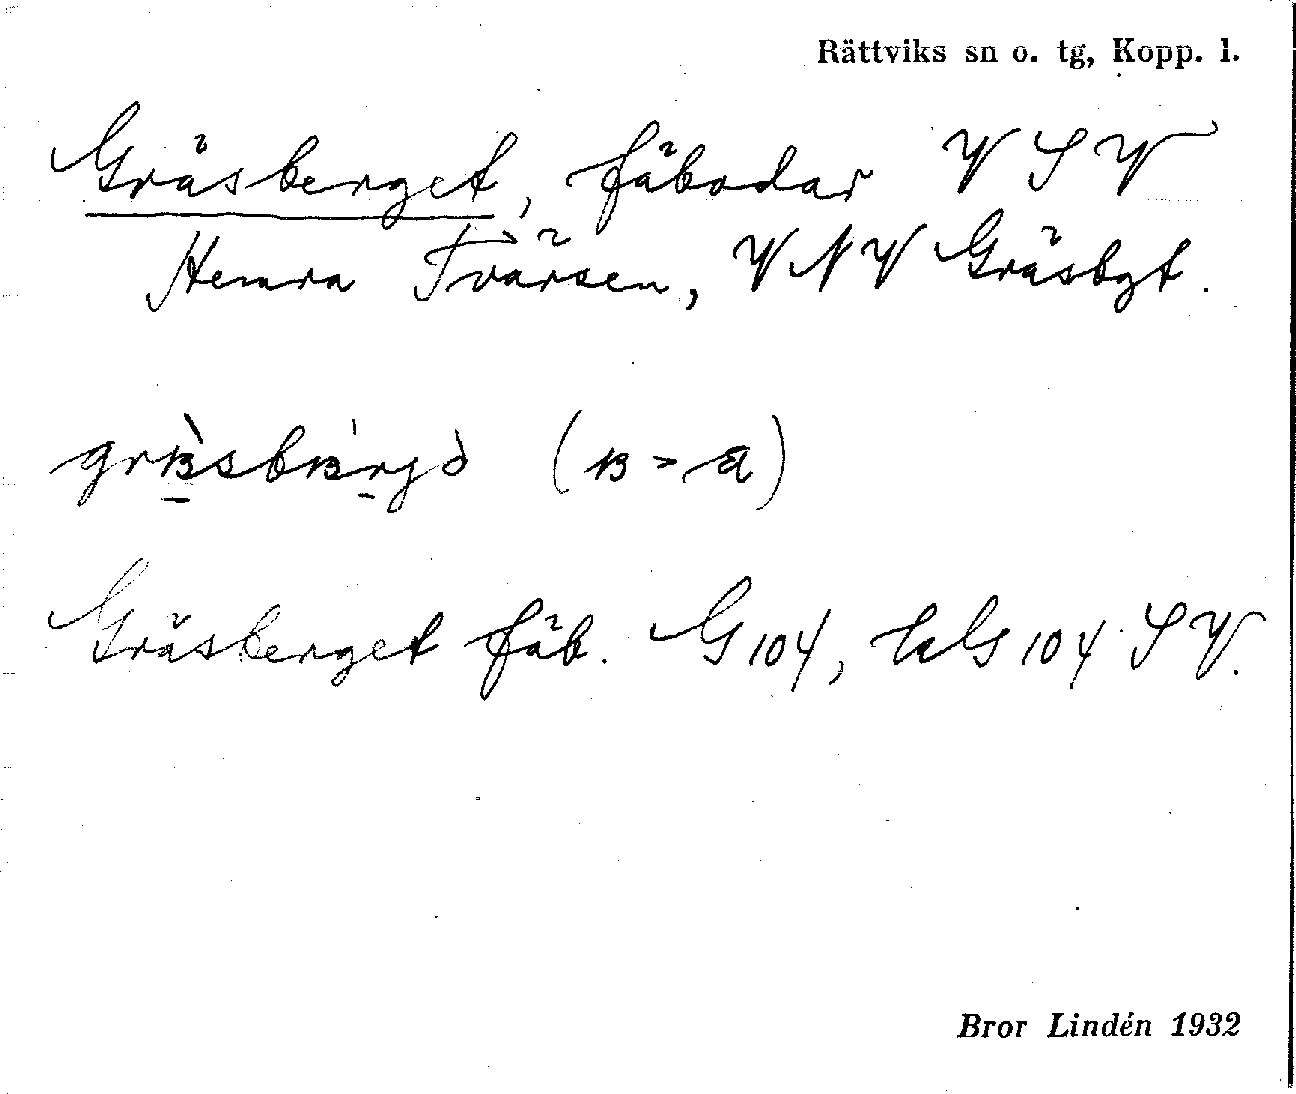 Rättviks sn o. tg, Kopp. l.
Gräsberget, fäbodar VSV
Hemra Tvärsen, VNV Gräsbgt.
Gräsberget fäb. G 104, kls 104 SV.
Bror Lindén 1932